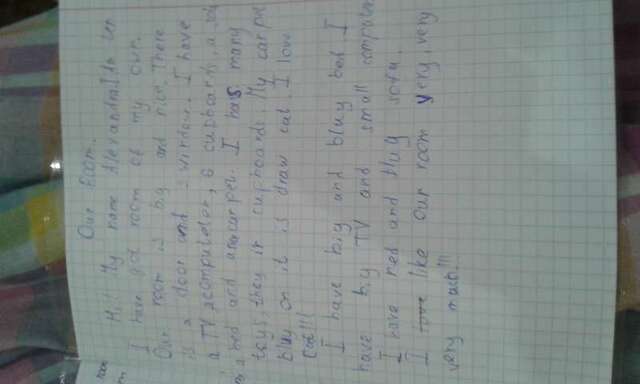 room
Our Room.
Hi! My name Alexandra. I am ten
I have got room of my own.
Our room is big and nice. There
is a door and window. I have
a TV, a computeter, 6 cupboards, a sofa
a bed and a carpet. I has many
toys, they in cupboards. My carpet
bluy on it is draw cat. I love
cat!!!
I have big and bluy bed I
have big TV and small computer
I have red and bluy sofa.
I like our room very, very
very much!!!